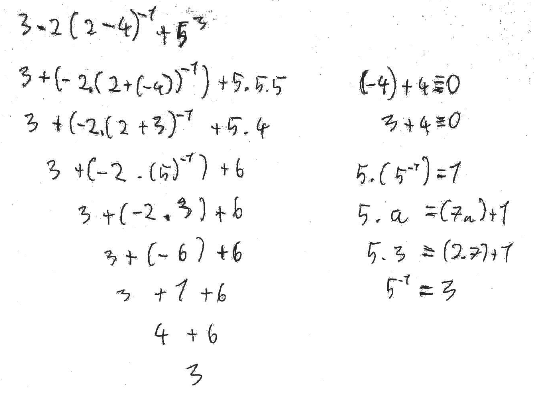 3-2(2-4)⁻¹+5³
3+(-2.(2+(-4))⁻¹)+5.5.5
3+(-2.(2+3)⁻¹ +5.4
3+(-2.(5)⁻¹)+6
3+(-2.3)+6
3+(-6)+6
3+1+6
4+6
3
(-4)+4≡0
3+4≡0
5.(5⁻¹)=1
5.a=(7n)+1
5.3=(2.7)+1
5⁻¹=3